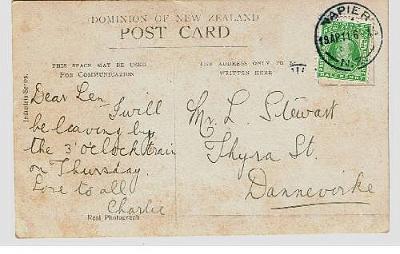 DOMINION OF NEW ZEALAND
POST CARD
THIS SPACE MAY BE USED
FOR COMMUNICATION
THE ADDRESS ONLY TO BE
WRITTEN HERE
NAPIER
19 AP 11
N.Z
HALFPENNY
Industria Series.
Dear Len,
I will
be leaving by
the 3 o'clock train
on Thursday.
Love to all
Charlie
Real Photograph
Mr. L. Stewart
Thyra St.
Dannevirke